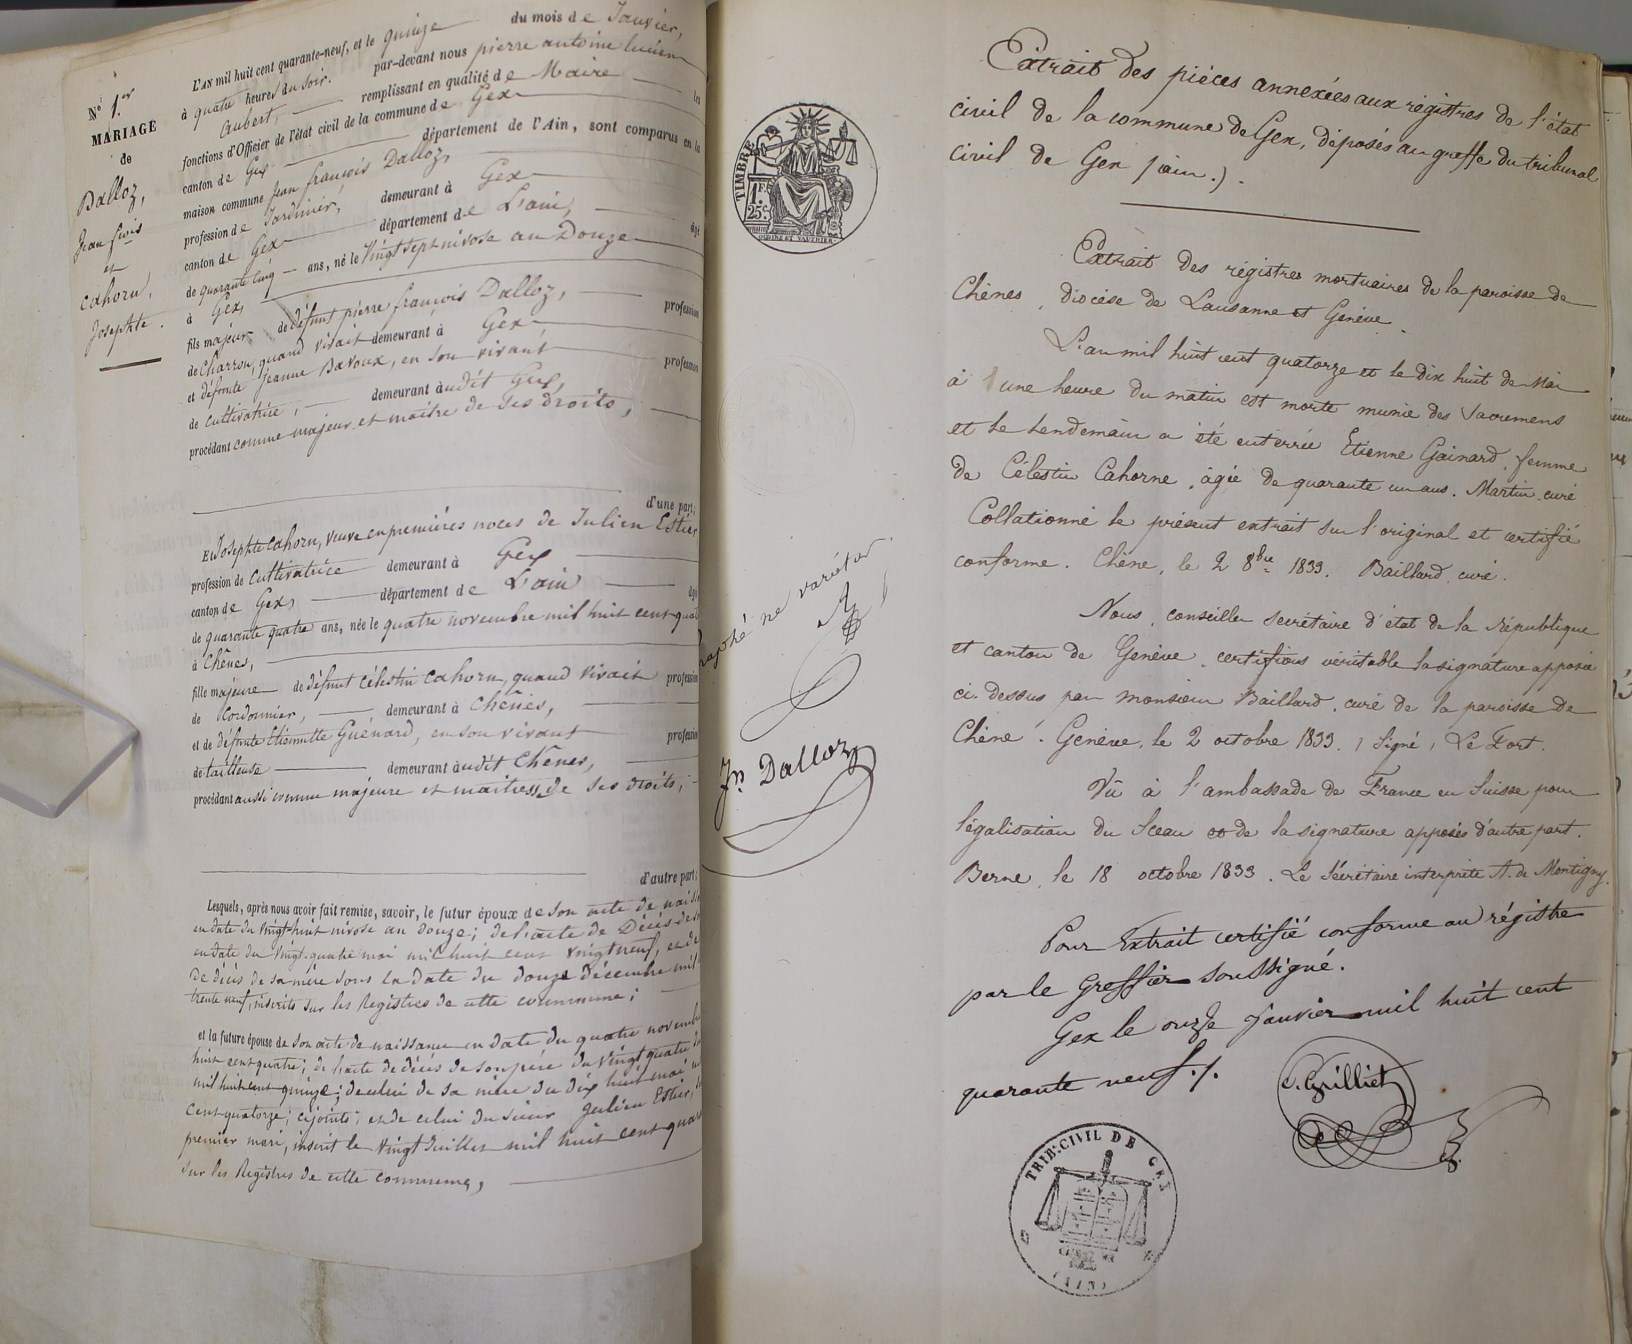 N° 1.er
MARIAGE
de
Dalloz,
Jean fçois
et
Cahorn,
Josephte.
L'AN mil huit cent quarante-neuf, et le quinze du mois de Janvier,
à quatre heures du soir. par-devant nous pierre antoine lucien
Aubert, remplissant en qualité de Maire les
fonctions d'Officier de l'état civil de la commune de Gex
canton de Gex département de l'Ain, sont comparus en la
maison commune Jean françois Dalloz,
profession de Jardinier, demeurant à Gex
canton de Gex département de L'ain, âgé
de quarante cinq ans, né le Vingt sept nivose an Douze
à Gex,
fils majeur de défunt pierre françois Dalloz, profession
de Charron, quand vivait demeurant à Gex
et défunte Jeanne Bavoux, en son vivant profession
de Cultivatrice, demeurant audit Gex,
procédant comme majeur et maître de ses droits,
d'une part;
Et Josephte Cahorn, veuve en premières noces de Julien Estier
profession de Cultivatrice demeurant à Gex
canton de Gex, département de L'ain âgé
de quarante quatre ans, née le quatre novembre mil huit cent quat
à Chênes,
fille majeure de défunt Célestin Cahorn, quand vivait profession
de Cordonnier, demeurant à Chênes,
et de défunte Etiennette Guénard, en son vivant profession
de tailleuse demeurant audit Chênes,
procédant aussi comme majeure et maitresse de ses droits,
d'autre part;
Lesquels, après nous avoir fait remise, savoir, le futur époux de son acte de naiss
en date du Vingt-huit nivose an douze; de l'acte de Décès de s
en date du Vingt-quatre mai mil huit cent vingt neuf, et de
de décès de sa mère sous la date du douze décembre mil
trente neuf, inscrits sur les Registres de cette commune;
et la future épouse de son acte de naissance en date du quatre novemb
huit cent quatre; de l'acte de décès de son père du Vingt quatre
mil huit cent quinze; de celui de sa mère du dix huit mai
cent quatorze, cijoints; et de celui du sieur Julien Estier,
premier mari, inscrit le Vingt Juillet mil huit cent quar
sur les Registres de cette commune,
TIMBRE
1 F.
25 C.
ne variétur
Jn. Dalloz
Extrait des pièces annexées aux régistres de l'état
civil de la commune de Gex, déposés au greffe du tribunal
civil de Gex (ain.).
Extrait des régistres mortuaires de la paroisse de
Chênes, diocèse de Lausanne et Genève.
L'an mil huit cent quatorze et le dix huit de Mai
à une heure du matin est morte munie des Sacremens
et le lendemain a été enterrée Etienne Gainard, femme
de Célestin Cahorne, âgée de quarante un ans. Martin, curé
Collationné le présent extrait sur l'original et certifié
conforme. Chêne, le 2 8bre 1833. Baillard, curé.
Nous, conseiller secrétaire d'état de la république
et canton de Genève, certifions véritable la signature apposée
ci-dessus par monsieur Baillard, curé de la paroisse de
Chêne. Genève, le 2 octobre 1833. (Signé) Le Fort.
Vû à l'ambassade de France en Suisse pour
légalisation du Sceau et de la signature apposés d'autre part.
Berne, le 18 octobre 1833. Le Sécrétaire interprète A. de Montigny.
Pour Extrait certifié conforme au régistre
par le Greffier soussigné.
Gex le onze janvier mil huit cent
quarante neuf./.
Grilliet
TRIB. CIVIL DE GEX
(AIN)